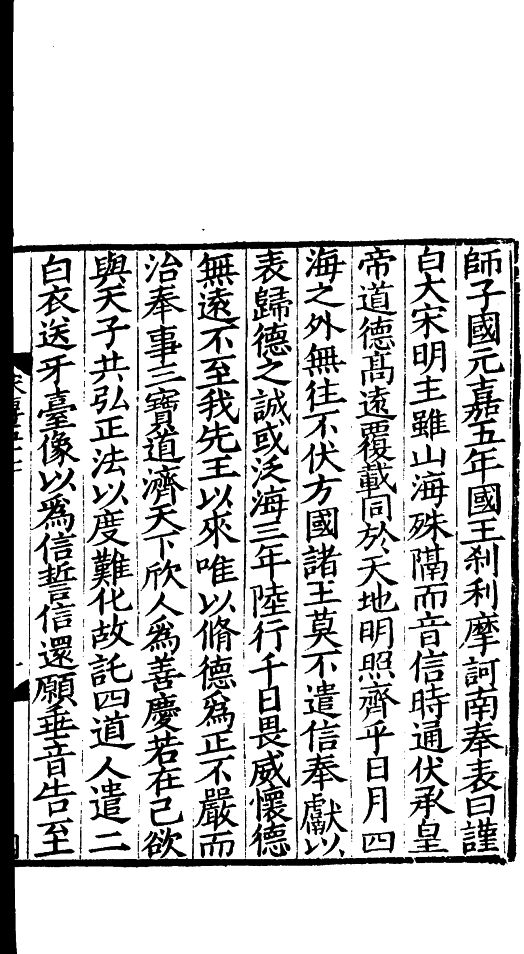 師子國元嘉五年國王剎利摩訶南奉表曰謹
白大宋明主雖山海殊隔而音信時通伏承皇
帝道德髙遠覆載同於天地明照齊乎日月四
海之外無往不伏方國諸王莫不遣信奉獻以
表歸德之誠或泛海三年陸行千日畏威懷德
無遠不至我先王以來唯以脩德爲正不嚴而
治奉事三寶道濟天下欣人爲善慶若在己欲
與天子共弘正法以度難化故託四道人遣二
白衣送牙臺像以爲信誓信還願垂音告至